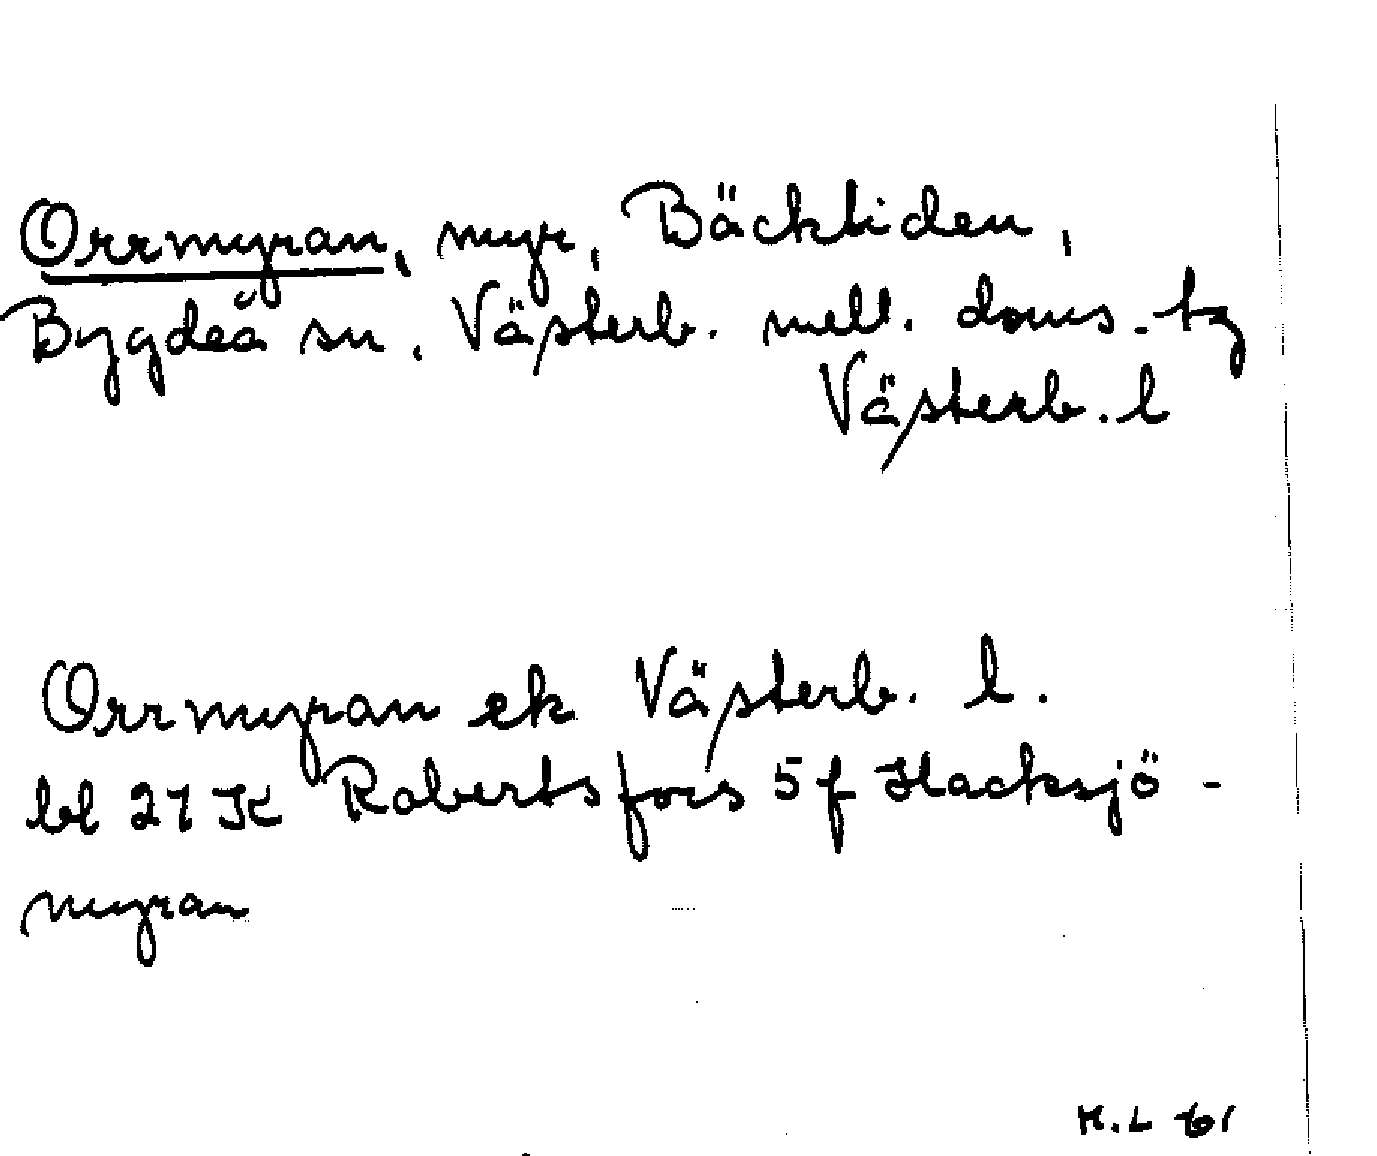 Orrmyran, myr, Bäckliden,
Bygdeå sn, Västerb. mell. doms. tg
Västerb. l
Orrmyran ek Västerb. l.
bl 21 K Robertsfors 5 f Hacksjö-
myran
M.L 61